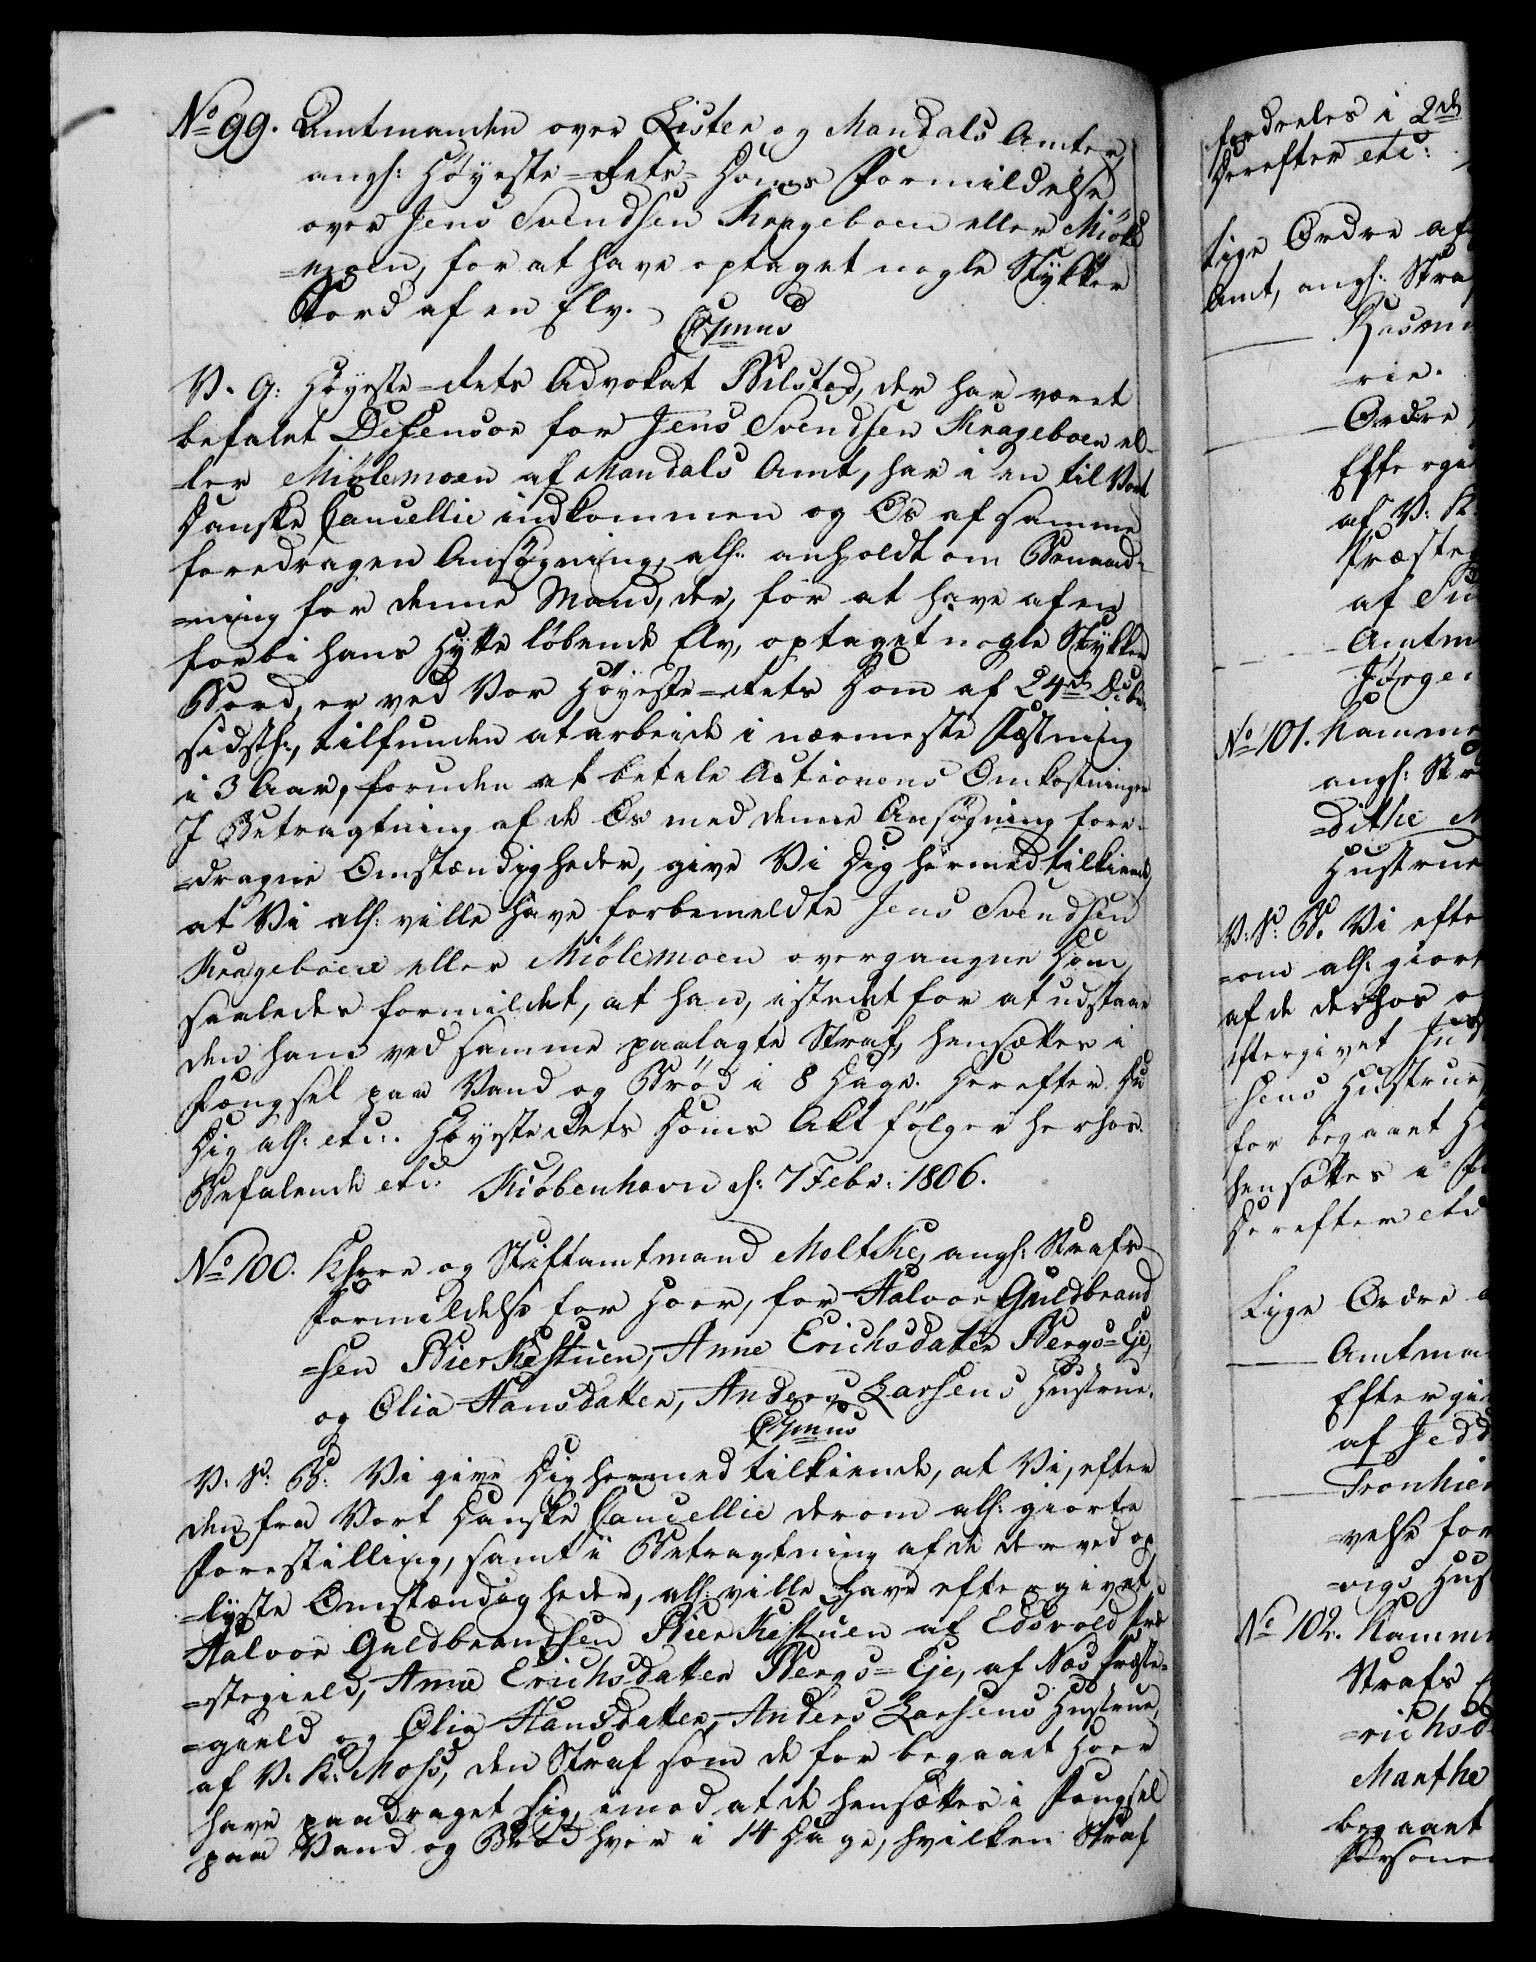 No 99. Amtmanden over Lister og Mandals Amter,
angh: Høyeste-Rets-Doms Formildelse
over Jens Svendsen Krageboen eller Miøle
=moen, for at have optaget nogle Stykker
Bord af en Elv.
V. G: Høyeste-Rets Advokat Bilsted, der har været
befalet Defensor for Jens Svendsen Krageboen el-
ler Miølemoen af Mandals Amt, har i en til Vort
Danske Cancellie indkommen og Os af samme
foredragen Ansøgning, alh: anholdt om Benaad-
=ning for denne Mand, der, for at have af en
forbi hans Hytte løbende Elv, optaget nogle Stykker
Bord, er ved Vor Høyeste-Rets Dom af 24de Octbr:
sidsth:, tilfunden at arbeide i nærmeste Fæstning
i 3 Aar, foruden at betale Actionens Omkostninger
I Betragtning af de Os med denne Ansøgning fore-
=dragne Omstændigheder, give Vi Dig hermed tilkiende,
at Vi alh: ville have forbemeldte Jens Svendsen
Krageboen eller Miølemoen overgangne Dom
saaledes formildet, at han, istedet for at udstaae
den ham ved samme paalagte Straf, hensættes i
Fængsel paa Vand og Brød i 8 Dage. Herefter Du
Dig alh: etc:. HøyesteRets Doms Akt følger herhos.
Befalende etc: Kiøbenhavn d: 7 Febr: 1806.
No 100. Khrre og Stiftamtmand Moltke, angh: Strafs
Formildelse for Hoer, for Halvor Guldbrand
=sen Bierkestuen, Anne Erichsdatter Bergs=Eje,
og Olia Hansdatter, Anders Larsens Hustrue.
V: S: B: Vi give Dig hermed tilkiende, at Vi, efter
den fra Vort Danske Cancellie derom alh: giorte
Forestilling, samt i Betragtning af de derved op
=lyste Omstændigheder, alh: ville have eftergivet
Halvor Guldbrandsen Bierkestuen af Edsvold Præ
=stegield, Anne Erichsdatter Bergs=Eje, af Næs Præste-
=gield og Olia Hansdatter, Anders Larsens Hustrue,
af V: K: Moss, den Straf som de for begaaet Hoer
have paadraget sig, imod at de hensættes i Fængsel
paa Vand og Brød hver i 14 Dage, hvilken Straf
fordreles i 2de
Herefter etc:
Lige Ordre af
Amt, angh: Stra
Rasmu
rie.
Ordre
Eftergi
af V: K
Præsteg
af Su
Amtm
Jørgen
No 101. Kamme
angh: Str
=dithe M
Hustrue
V: S: B. Vi efte
=om alh: giort
af de derhos o
eftergivet
Jens Hustrue
for begaaet H
hensættes i F
Herefter etc
Lige Ordre
Amtma
Eftergi
af Jedd
Tronhie
=velse for
=vigs Hus
No 102. Kamme
Strafs
=richsd
Marthe
begaaet
Persone